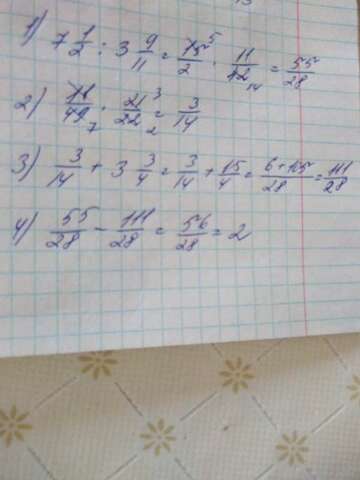 1) 7 1/2 : 3 9/11 = 15 5/2 · 11/42 14 = 55/28
2) 11/49 7 · 21 3/22 2 = 3/14
3) 3/14 + 3 3/4 = 3/14 + 15/4 = 6+105/28 = 111/28
4) 55/28 - 111/28 = 56/28 = 2